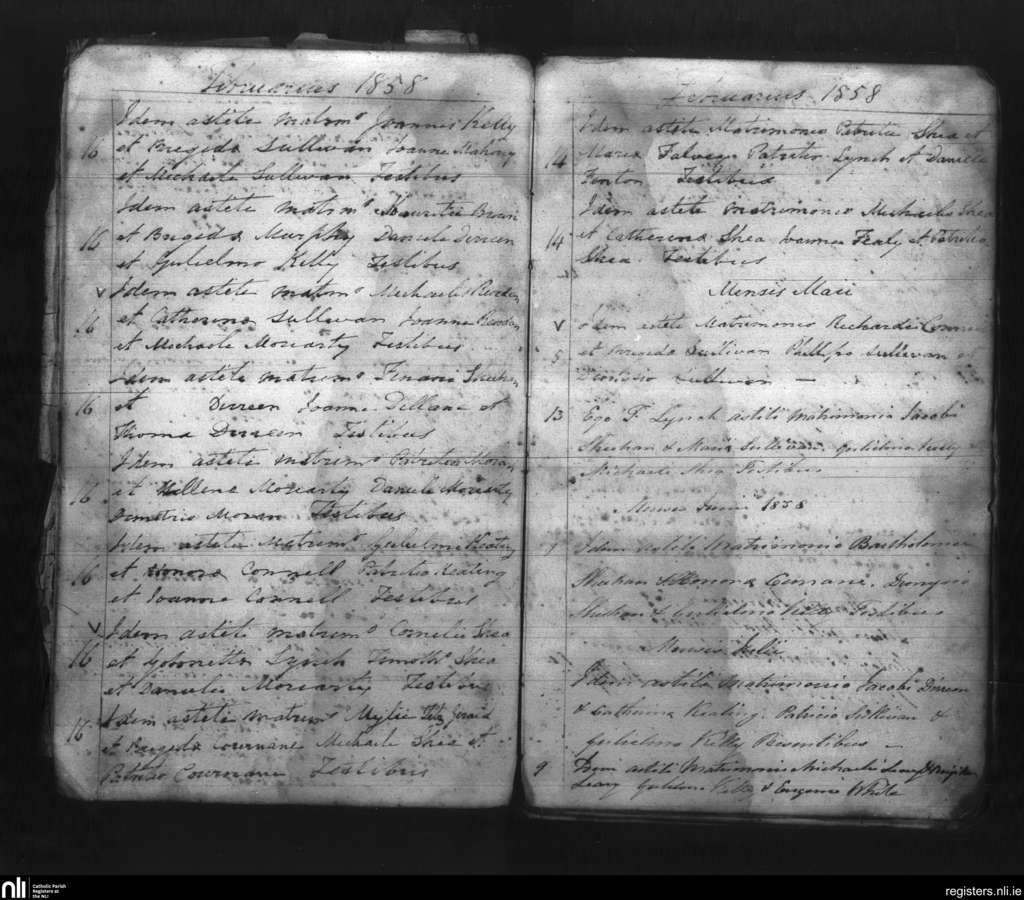 Februarius 1858
Idem astiti matrimo Joannis Kelly
16 et Brigida Sullivan Joanne Mahony
et Michaele Sullivan Testibus
Idem astiti matrimo Mauritii
16 et Brigida Murphy Daniele Dineen
et Gulielmo Kelly Testibus
v Idem astiti matrimo Michaelis
16 et Catherina Sullivan Joanne
et Michaele Moriarty Testibus
Idem astiti matrimo Sheehan
16 et Dineen Joanne Dillane et
Thoma Dineen Testibus
Idem astiti matrimo Moran
16 et Hellena Moriarty Daniele Moriarty
Demetrio Moran Testibus
Idem astiti Matrimo Gulielmi Keating
16 et Honora Connell Patritio Keating
et Joanne Connell Testibus
v Idem astiti matrimo Cornelii Shea
16 et Gobinetta Lynch Timotho Shea
et Daniele Moriarty Testibus
Idem astiti matrimo Mylie Fitz Gerald
16 et Brigida Cournane Michaele Shea et
Patritio Cournane Testibus
Februarius 1858
Idem astiti Matrimonio Patritii Shea et
14 Maria Falvey Patritio Lynch et Daniele
Fenton Testibus
Idem astiti matrimonio Michaelis Shea
14 et Catherina Shea Joanne Healy et Patritio
Shea Testibus
Mensis Maii
v Idem astiti Matrimonio Richardi
5 et Brigida Sullivan Phillipo Sullivan et
Dionisio Sullivan —
13 Ego F Lynch astiti matrimonio Jacobi
Sheehan & Maria Sullivan Gulielmo Kelly
Michaele Shea Testibus
Mensis Junii 1858
Idem astiti Matrimonio Bartholomei
Sheehan & Honora Dionysio
Sheehan & Gulielmo Testibus
Mensis Julii
Idem astiti Matrimonio Jacobi Dineen
& Catherina Keating. Patricio Sullivan &
Gulielmo Kelly Presentibus —
9 Idem astiti Matrimonio Michaelis Leary &
Leary Kelly & Eugenio White
nli Catholic Parish
Registers at
the NLI
registers.nli.ie